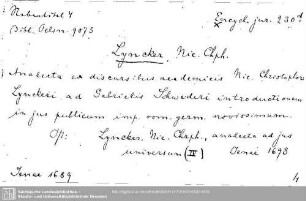 Nebentitel 4 Encycl. jur. 230d
Bibl. Oelsn. 9073
Lyncker, Nic. Chph.
Analecta ad discursibus academicis Nic. Christophori
Lynckeri ad Gabrielis Schwederi introductionem
in jus publicum imp. rom. germ. novissimum.
Op: Lyncker, Nic. Choph., analecta ad jus
universum (II) Jenae 1698
Jenae 1689 4
Sächsische Landesbibliothek -
Staats- und Universitätsbibliothek Dresden